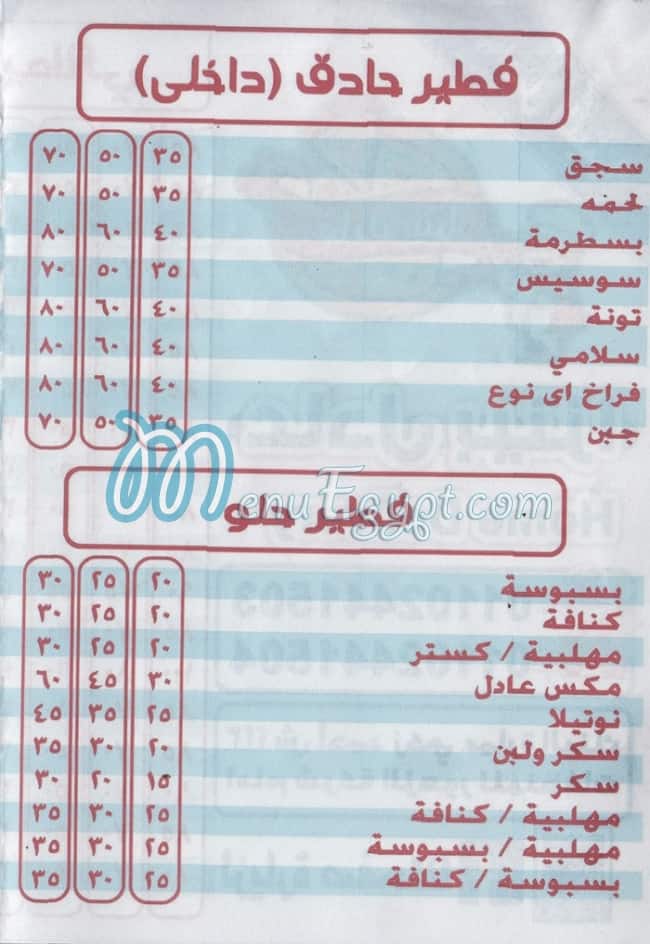 فطير حادق (داخلى)
سجق ٣٥ ٥٠ ٧٠
لحمه ٣٥ ٥٠ ٧٠
بسطرمة ٤٠ ٦٠ ٨٠
سوسيس ٣٥ ٥٠ ٧٠
تونة ٤٠ ٦٠ ٨٠
سلامي ٤٠ ٦٠ ٨٠
فراخ اى نوع ٤٠ ٦٠ ٨٠
جبن ٣٥ ٥٠ ٧٠
MenuEgypt.com
فطير حلو
بسبوسة ٢٠ ٢٥ ٣٠
كنافة ٢٠ ٢٥ ٣٠
مهلبية / كستر ٢٠ ٢٥ ٣٠
مكس عادل ٣٠ ٤٥ ٦٠
نوتيلا ٢٥ ٣٥ ٤٥
سكر ولبن ٢٠ ٣٠ ٣٥
سكر ١٥ ٢٠ ٣٠
مهلبية / كنافة ٢٥ ٣٠ ٣٥
مهلبية / بسبوسة ٢٥ ٣٠ ٣٥
بسبوسة / كنافة ٢٥ ٣٠ ٣٥